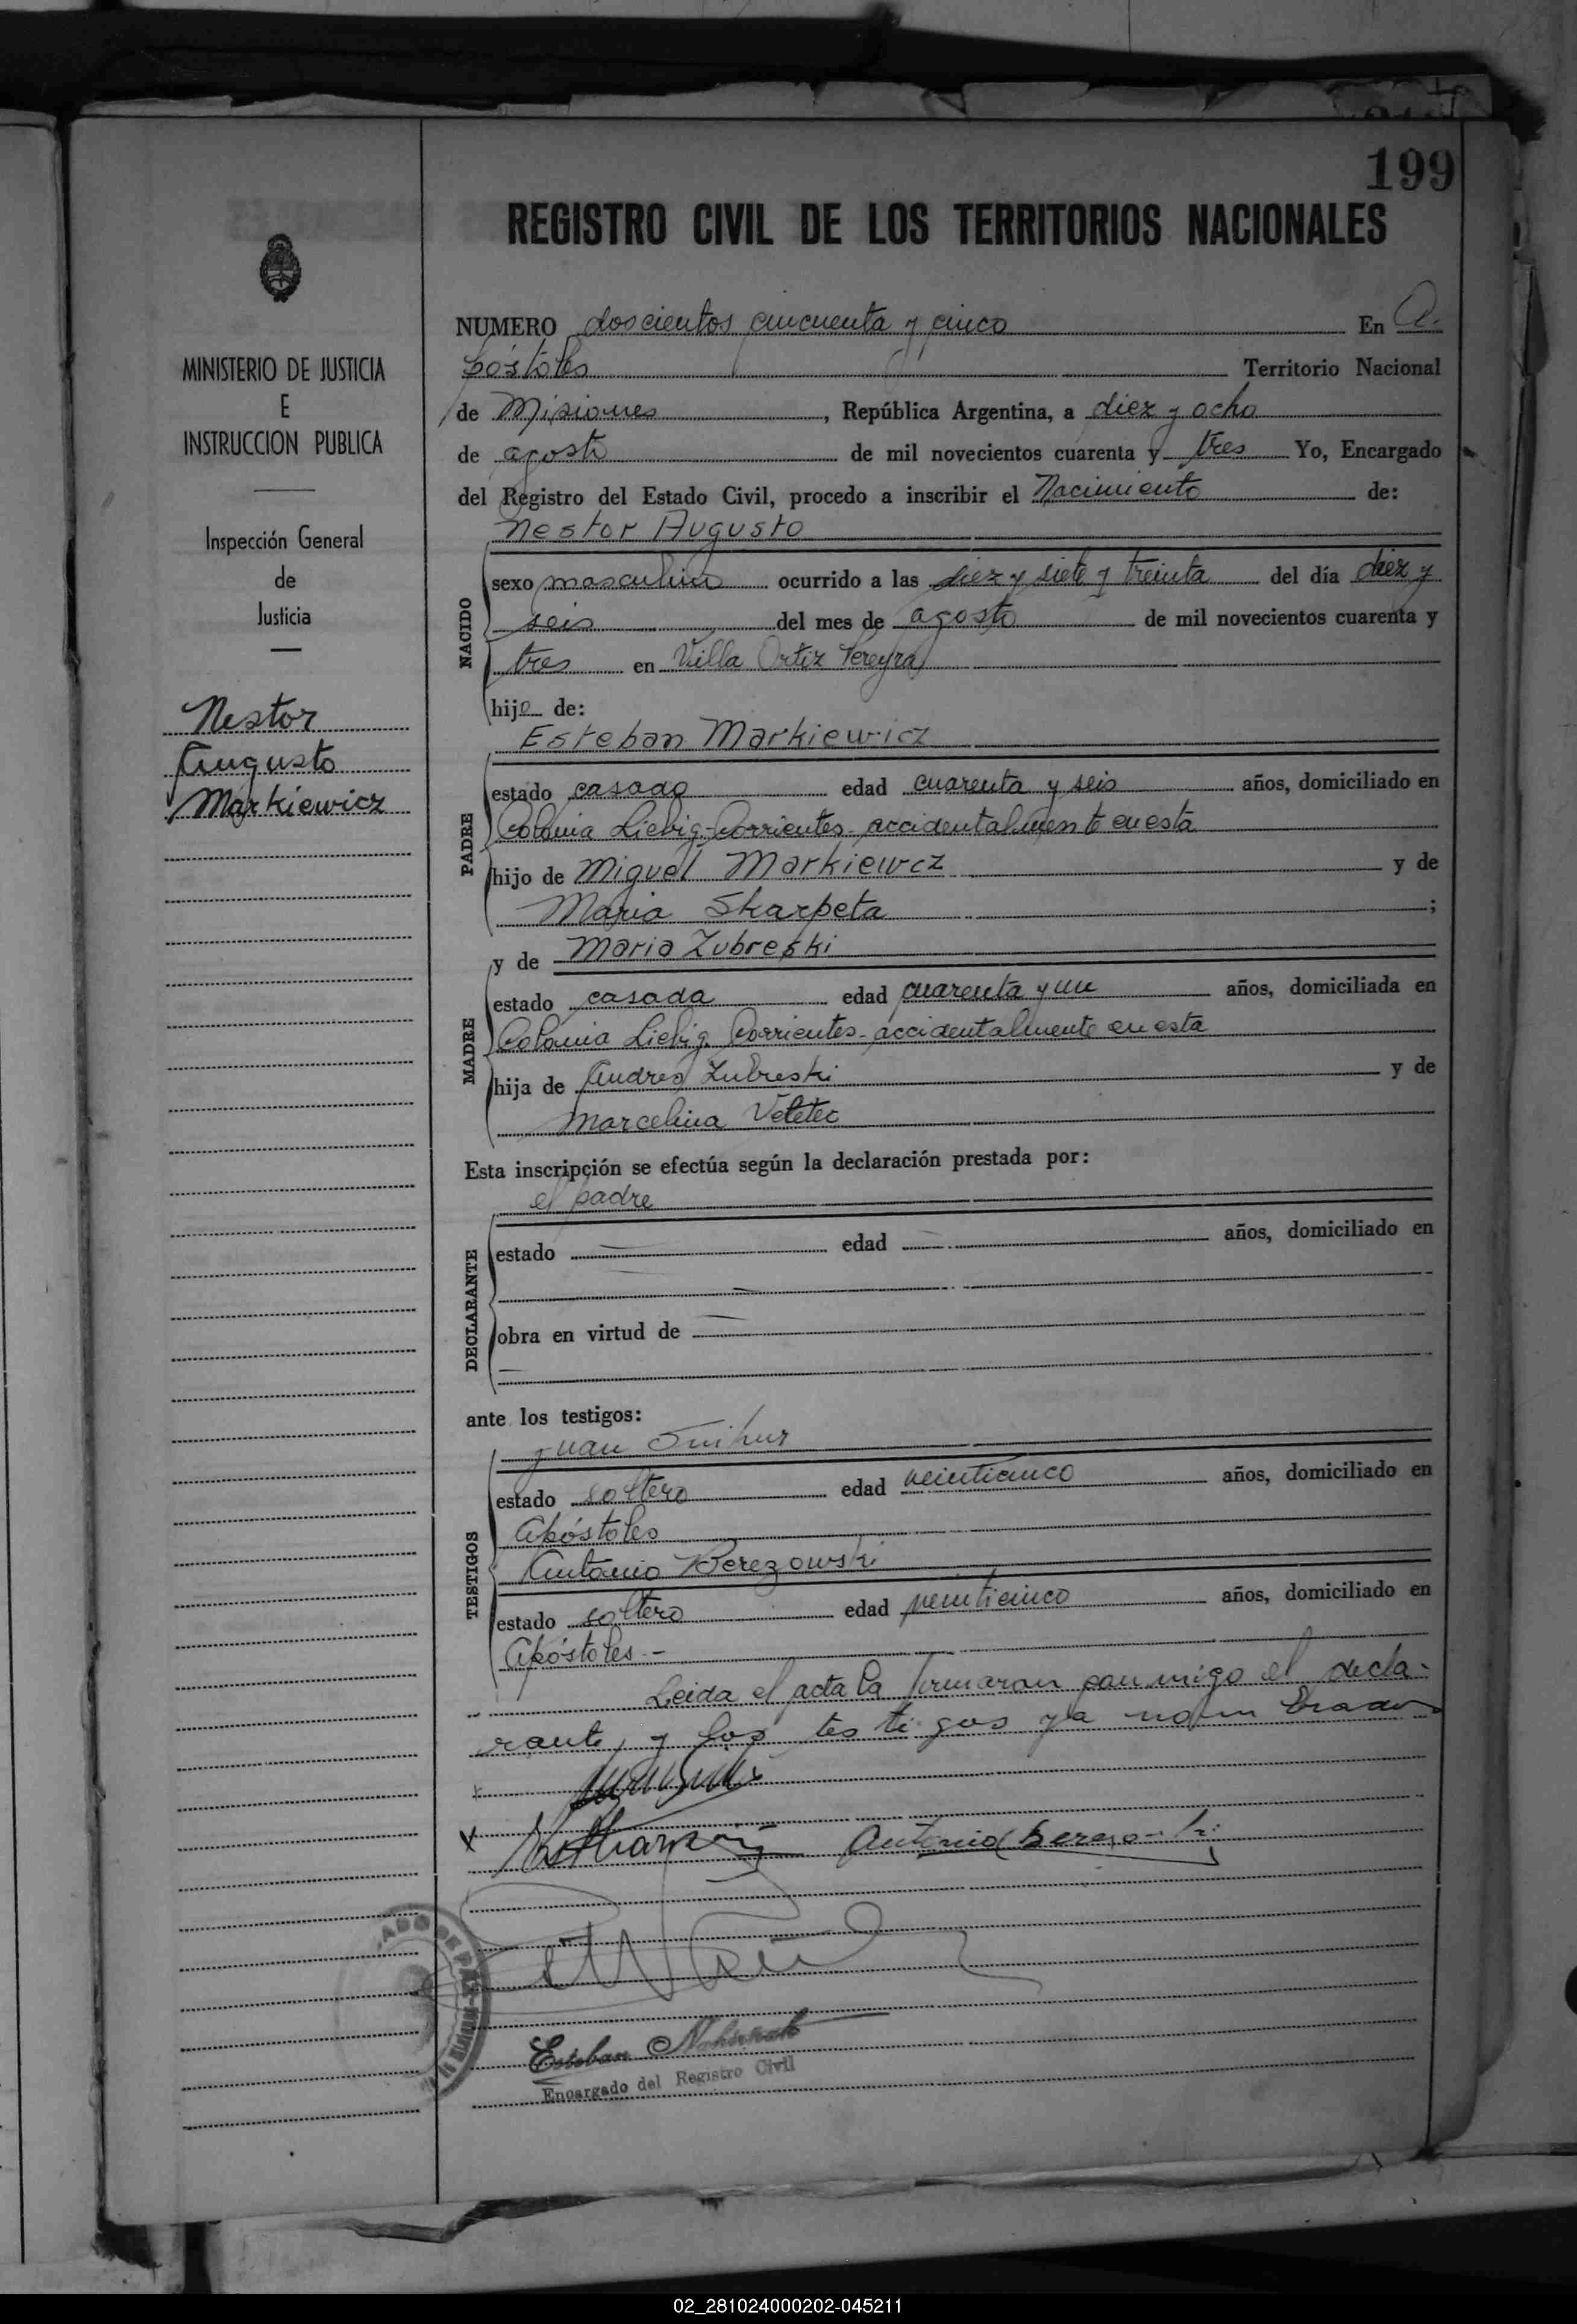 199
REGISTRO CIVIL DE LOS TERRITORIOS NACIONALES
MINISTERIO DE JUSTICIA
E
INSTRUCCION PUBLICA
Inspección General
de
Justicia
Nestor
Augusto
Markiewicz
NUMERO doscientos cincuenta y cinco En A-
póstoles Territorio Nacional
de Misiones, República Argentina, a diez y ocho
de agosto de mil novecientos cuarenta y tres Yo, Encargado
del Registro del Estado Civil, procedo a inscribir el Nacimiento de:
Nestor Augusto
NACIDO
sexo masculino ocurrido a las diez y siete y treinta del día diez y
seis del mes de agosto de mil novecientos cuarenta y
tres en Villa Ortiz Pereyra
hijo de:
Esteban Markiewicz
PADRE
estado casado edad cuarenta y seis años, domiciliado en
Colonia Liebig-Corrientes-accidentalmente en esta
hijo de Miguel Markiewcz y de
Maria Skarpeta ;
y de Maria Zubreski
MADRE
estado casada edad cuarenta y un años, domiciliada en
Colonia Liebig. Corrientes-accidentalmente en esta
hija de Andres Zubreski y de
Marcelina Veletec
Esta inscripción se efectúa según la declaración prestada por:
el padre
DECLARANTE
estado — edad — años, domiciliado en
—
obra en virtud de —
—
ante los testigos:
Juan
TESTIGOS
estado soltero edad veinticinco años, domiciliado en
Apóstoles
Antonio Berezowski
estado soltero edad veinticinco años, domiciliado en
Apóstoles.-
Leida el acta la firmaron conmigo el decla-
rante, y los testigos ya nombrados
Antonio
Esteban
Encargado del Registro Civil
02_281024000202-045211